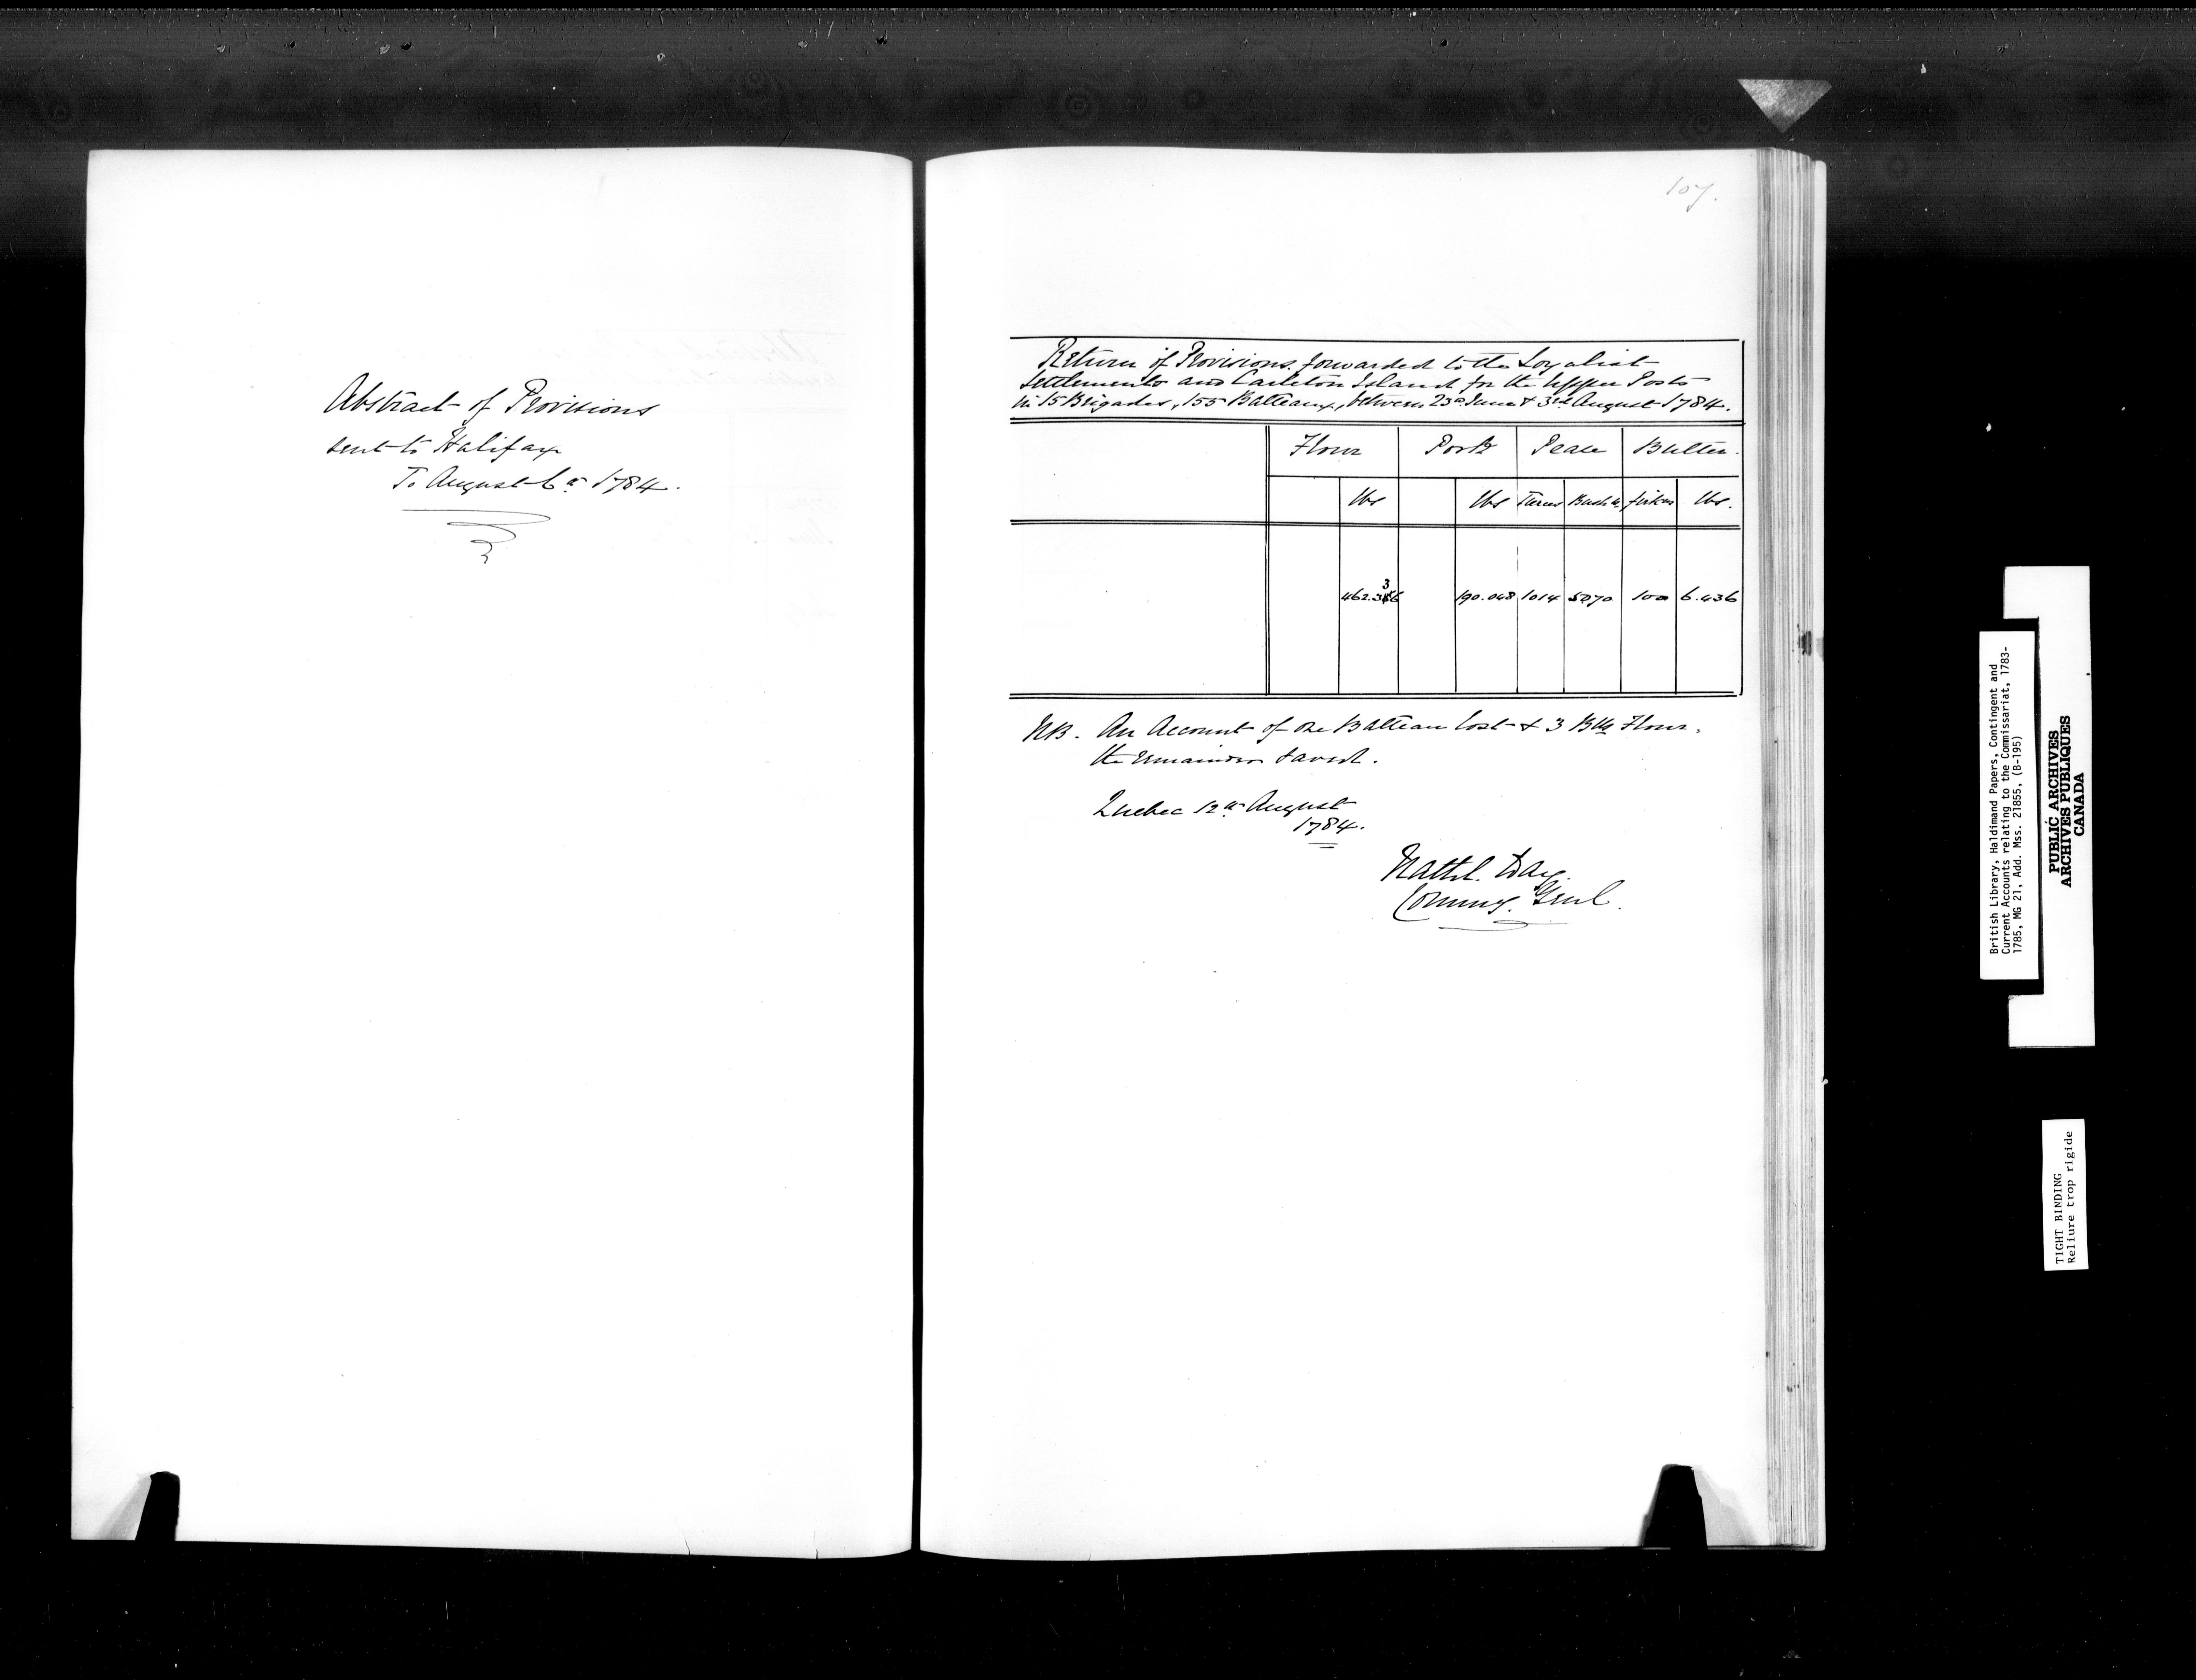 Abstract of Provisions
sent to Halifax
To August 6th 1784.
107.
Return of Provisions forwarded to the Loyalist
Settlements and Carleton Island for the Upper Posts
in 15 Brigades, 155 Batteaux, between 23d June & 3rd August 1784.
Flour Pork Pease Butter.
lbs lbs Tierces Bushls firkins lbs.
462.336 190.048 1014 5070 100 6.436
NB. An Account of one Batteau lost & 3 Blls Flour,
the remainder saved.
Quebec 12th August
1784.
Nathl. Day.
Commy. Genl.
British Library, Haldimand Papers, Contingent and
Current Accounts relating to the Commissariat, 1783-
1785, MG 21, Add. Mss. 21855, (B-195)
PUBLIC ARCHIVES
ARCHIVES PUBLIQUES
CANADA
TIGHT BINDING
Reliure trop rigide